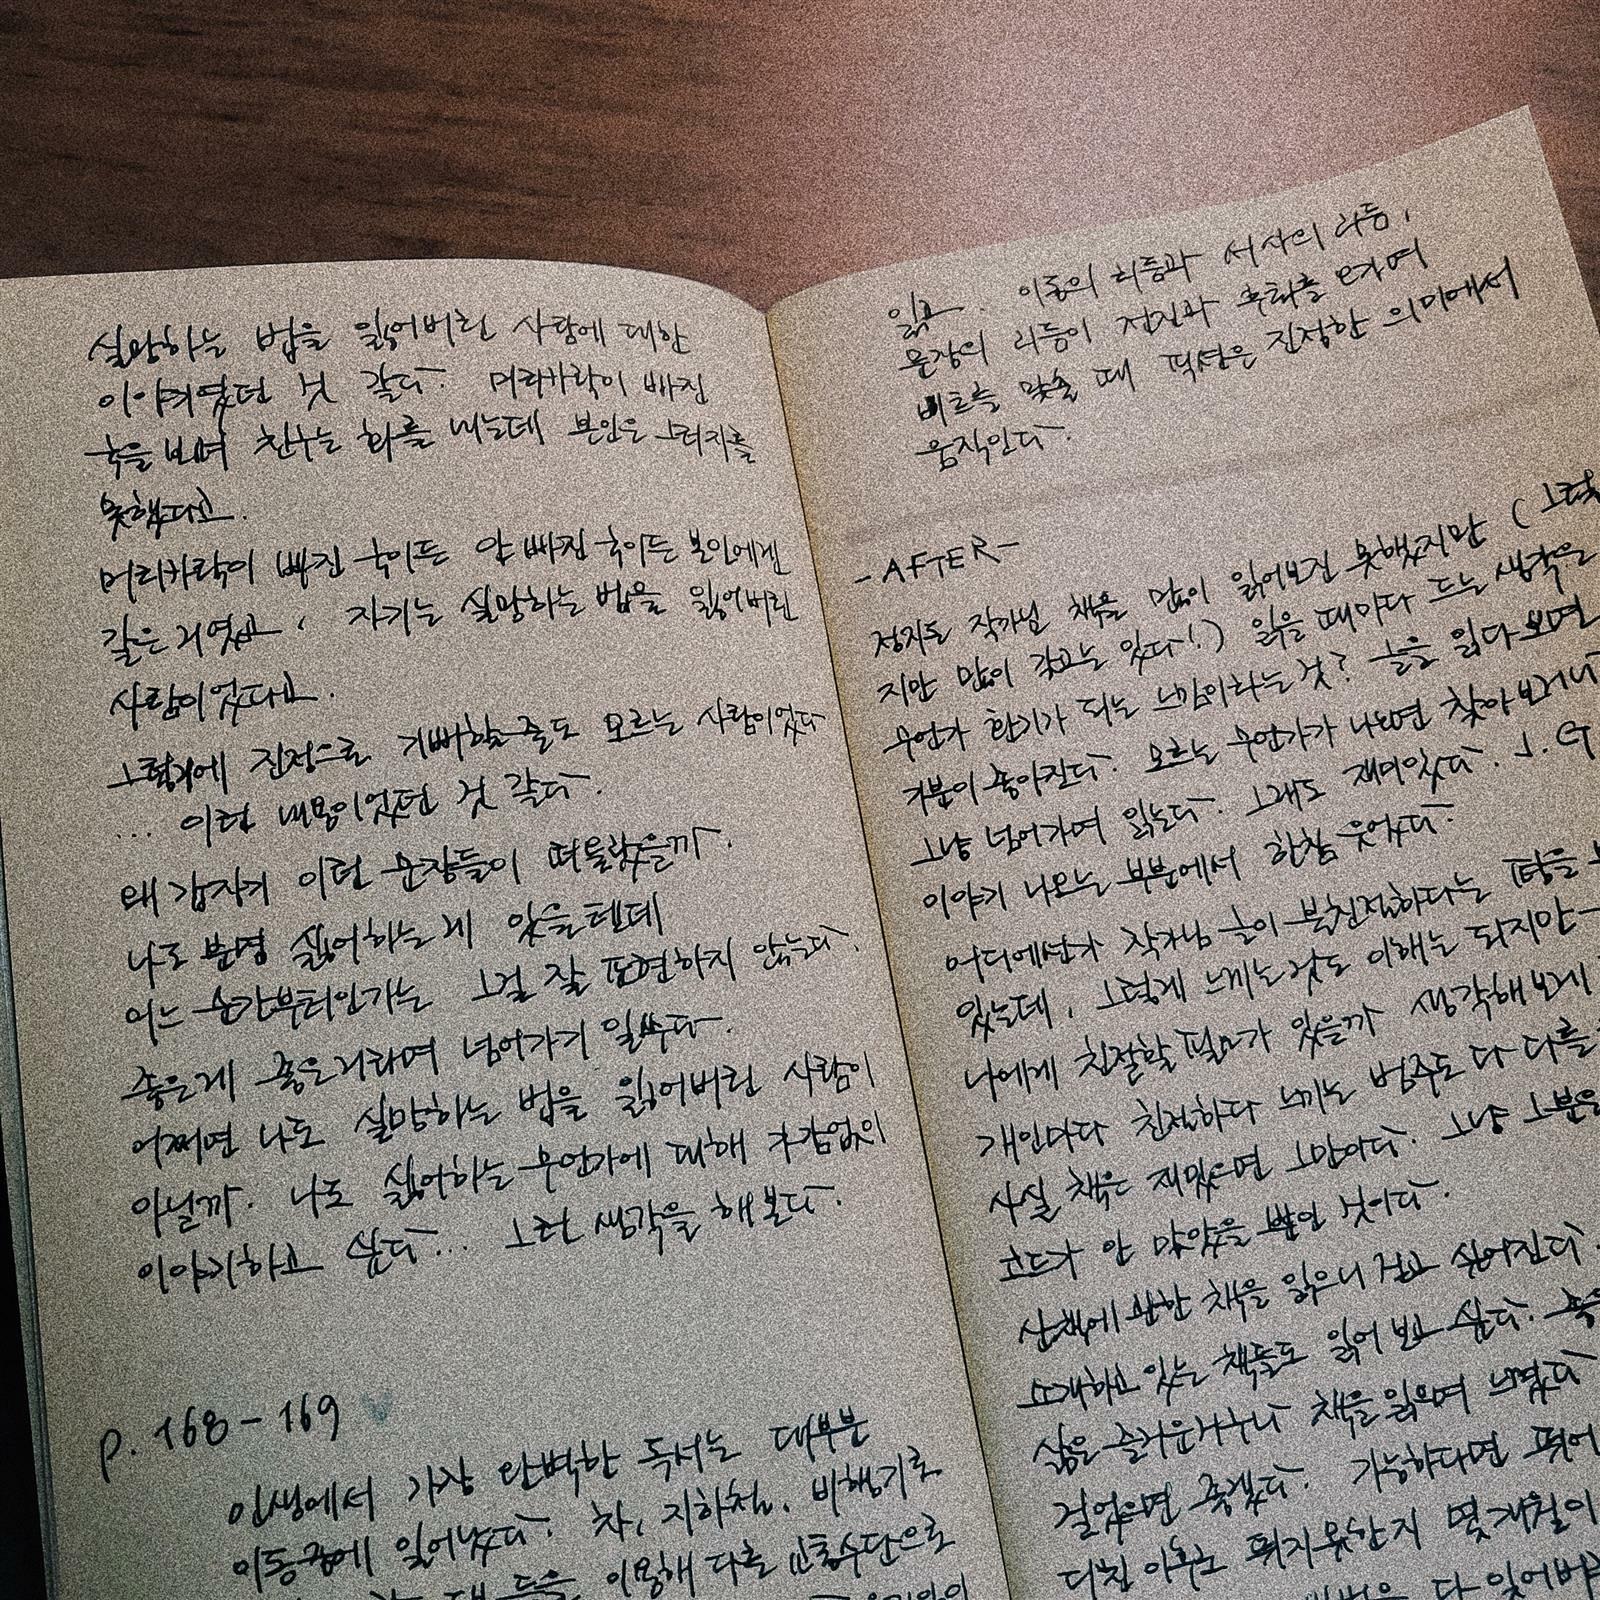 실망하는 법을 잃어버린 사람에 대한
이야기였던 것 같다. 머리카락이 빠진
국을 보며 친구는 화를 내는데 본인은 그러지를
못했다고.
머리카락이 빠진 국이든 안 빠진 국이든 본인에겐
같은 거였고, 자기는 실망하는 법을 잃어버린
사람이었다고.
그렇기에 진정으로 기뻐할 줄도 모르는 사람이었다
... 이런 내용이었던 것 같다.
왜 갑자기 이런 문장들이 떠올랐을까.
나도 분명 싫어하는 게 있을텐데
어느 순간부터인가는 그걸 잘 표현하지 않는다.
좋은게 좋은거라며 넘어가기 일쑤다.
어쩌면 나도 실망하는 법을 잃어버린 사람이
아닐까. 나도 싫어하는 무언가에 대해 가감없이
이야기하고 싶다... 그런 생각을 해본다.
p. 168-169
인생에서 가장 완벽한 독서는 대부분
이동중에 일어났다. 차, 지하철, 비행기로
이용해 다른 교통수단으로
읽고. 이동의 리듬과 서사의 리듬,
문장의 리듬이 전진과 후퇴를 하며
비트를 맞출 때 픽션은 진정한 의미에서
움직인다.
-AFTER-
정지돈 작가님 책을 많이 읽어보진 못했지만 (그렇
지만 많이 갖고는 있다!) 읽을 때마다 드는 생각은
무언가 환기가 되는 느낌이라는 것? 글을 읽다 보면
기분이 좋아진다. 모르는 무언가가 나오면 찾아보거나
그냥 넘어가며 읽는다. 그래도 재미있다. J.G
이야기 나오는 부분에서 한참 웃었다.
어디에선가 작가님 글이 불친절하다는 평을
있는데, 그렇게 느끼는 것도 이해는 되지만
나에게 친절할 필요가 있을까 생각해보게
개인마다 친절하다 느끼는 범주도 다 다를
사실 책은 재밌으면 그만이다. 그냥 그분은
코드가 안 맞았을 뿐인 것이다.
산책에 관한 책을 읽으니 걷고 싶어진다.
소개하고 있는 책들도 읽어 보고 싶다.
삶은 즐거운거구나 책을 읽으며 느꼈다
걸었으면 좋겠다. 가능하다면 뛰어
다친 이후로 뛰지 못한지 몇개월이
다 잊어버